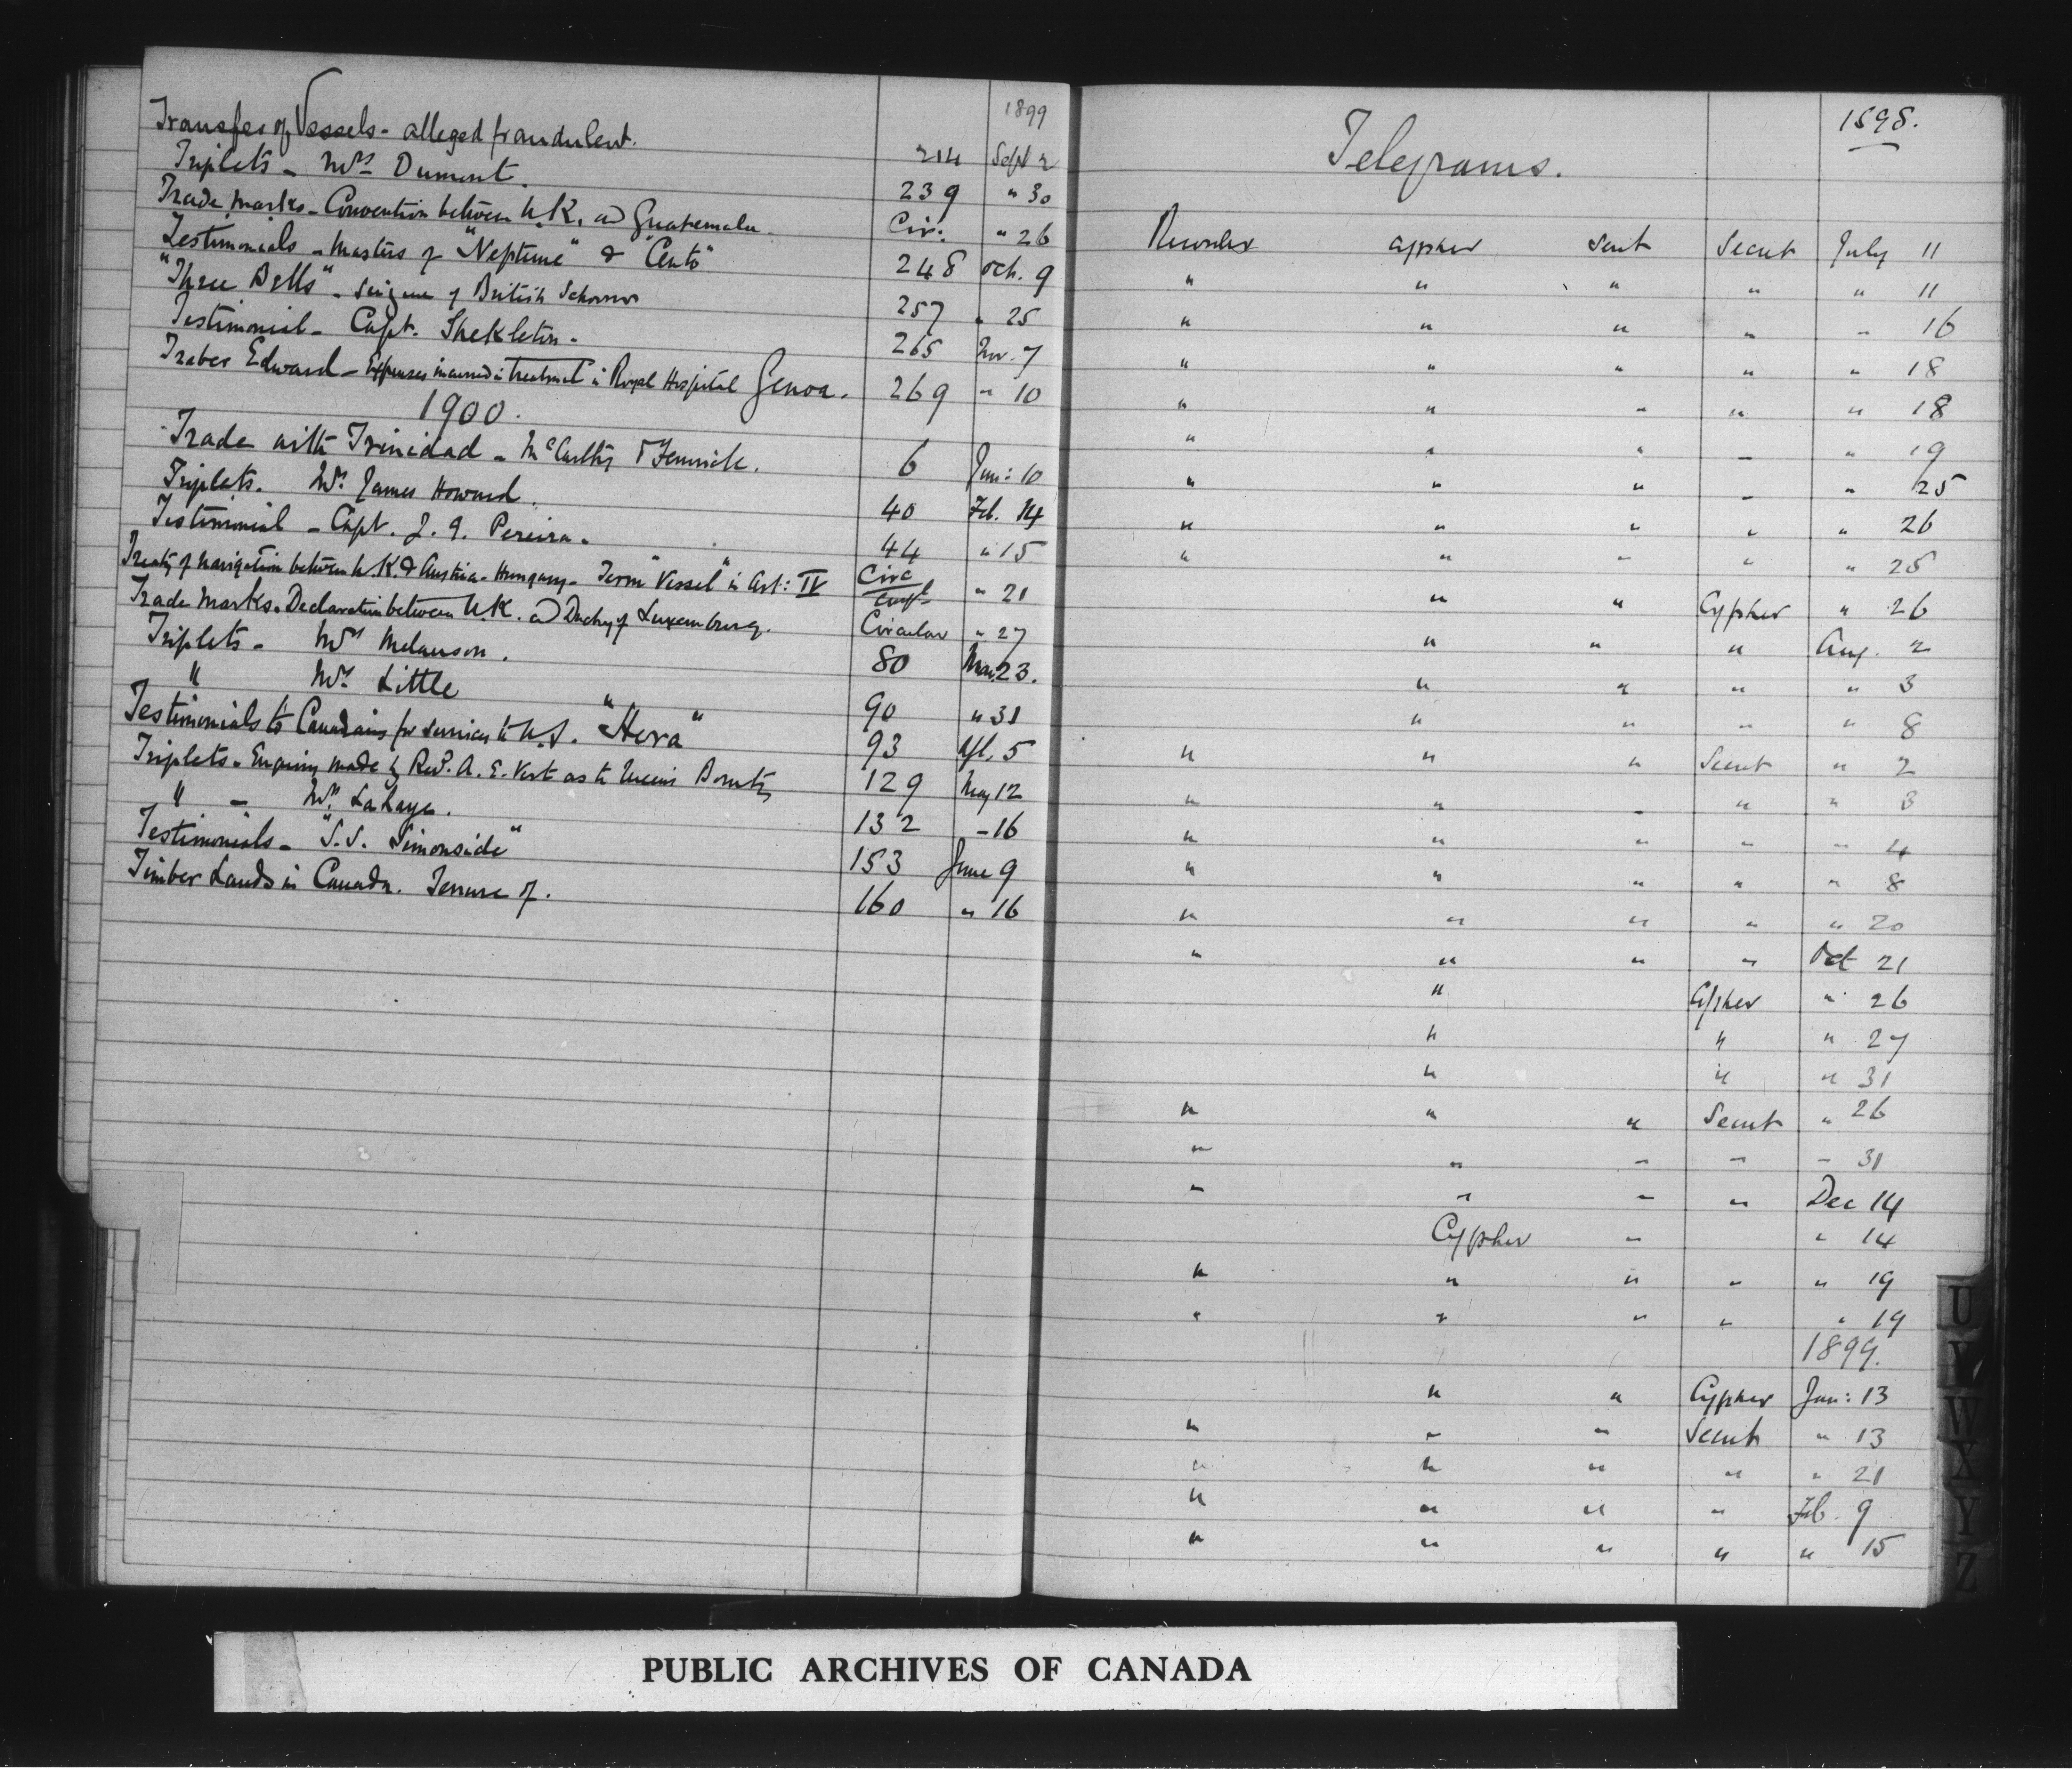 1899
Transfer of Vessels - alleged fraudulent. 214 Sept 2
Triplets - Mrs Dumont. 239 " 30
Trade Marks - Convention between U.K. and Guatemala - Cir: " 26
Testimonials - Masters of "Neptune" & "Cento" 248 Oct. 9
"Three Bells" - seizure of British Schooner 257 " 25
Testimonial - Capt. Shekleton - 265 Nov. 7
Traber Edward - Expenses incurred in treatment in Royal Hospital Genoa. 269 " 10
1900.
Trade with Trinidad - McCarthy & Fenwick. 6 Jan: 10
Triplets. Mrs James Howard. 40 Feb. 14
Testimonial - Capt. J. 9. Pereira. 44 " 15
Treaty of Navigation between U.K. & Austria-Hungary - Term "Vessel" in Art: IV Circ " 21
Trade Marks. Declaration between U.K. and Duchy of Luxemburg. Circular " 27
Triplets - Mrs Melanson. 80 Mar. 23.
" Mrs Little 90 " 31
Testimonials to Canadians for services to U.S. "Hera" 93 Apl. 5
Triplets - Enquiry made by Revd. A. E. as to Queen's Bounty 129 May 12
" - Mrs LaHaye. 132 - 16
Testimonials - "S.S. Simonside" 153 June 9
Timber Lands in Canada. Tenure of. 160 " 16
Telegrams. 1898.
Recorder cypher sent Secret July 11
" " " " " 11
" " " " " 16
" " " " " 18
" " " " " 18
" " " " " 19
" " " " " 25
" " " " " 26
" " " " " 25
" " Cypher " 26
" " " Aug. 2
" " " " 3
" " " " 8
" " " Secret " 2
" " " " " 3
" " " " " 4
" " " " " 8
" " " " " 20
" " " " Oct 21
" Cypher " 26
" " " 27
" " " 31
" " " Secret " 26
" " " " " 31
" " " " Dec 14
Cypher " " 14
" " " " " 19
" " " " " 19
1899.
" " Cypher Jan: 13
" " " Secret " 13
" " " " " 21
" " " " Feb. 9
" " " " " 15
U
V
W
X
Y
Z
PUBLIC ARCHIVES OF CANADA